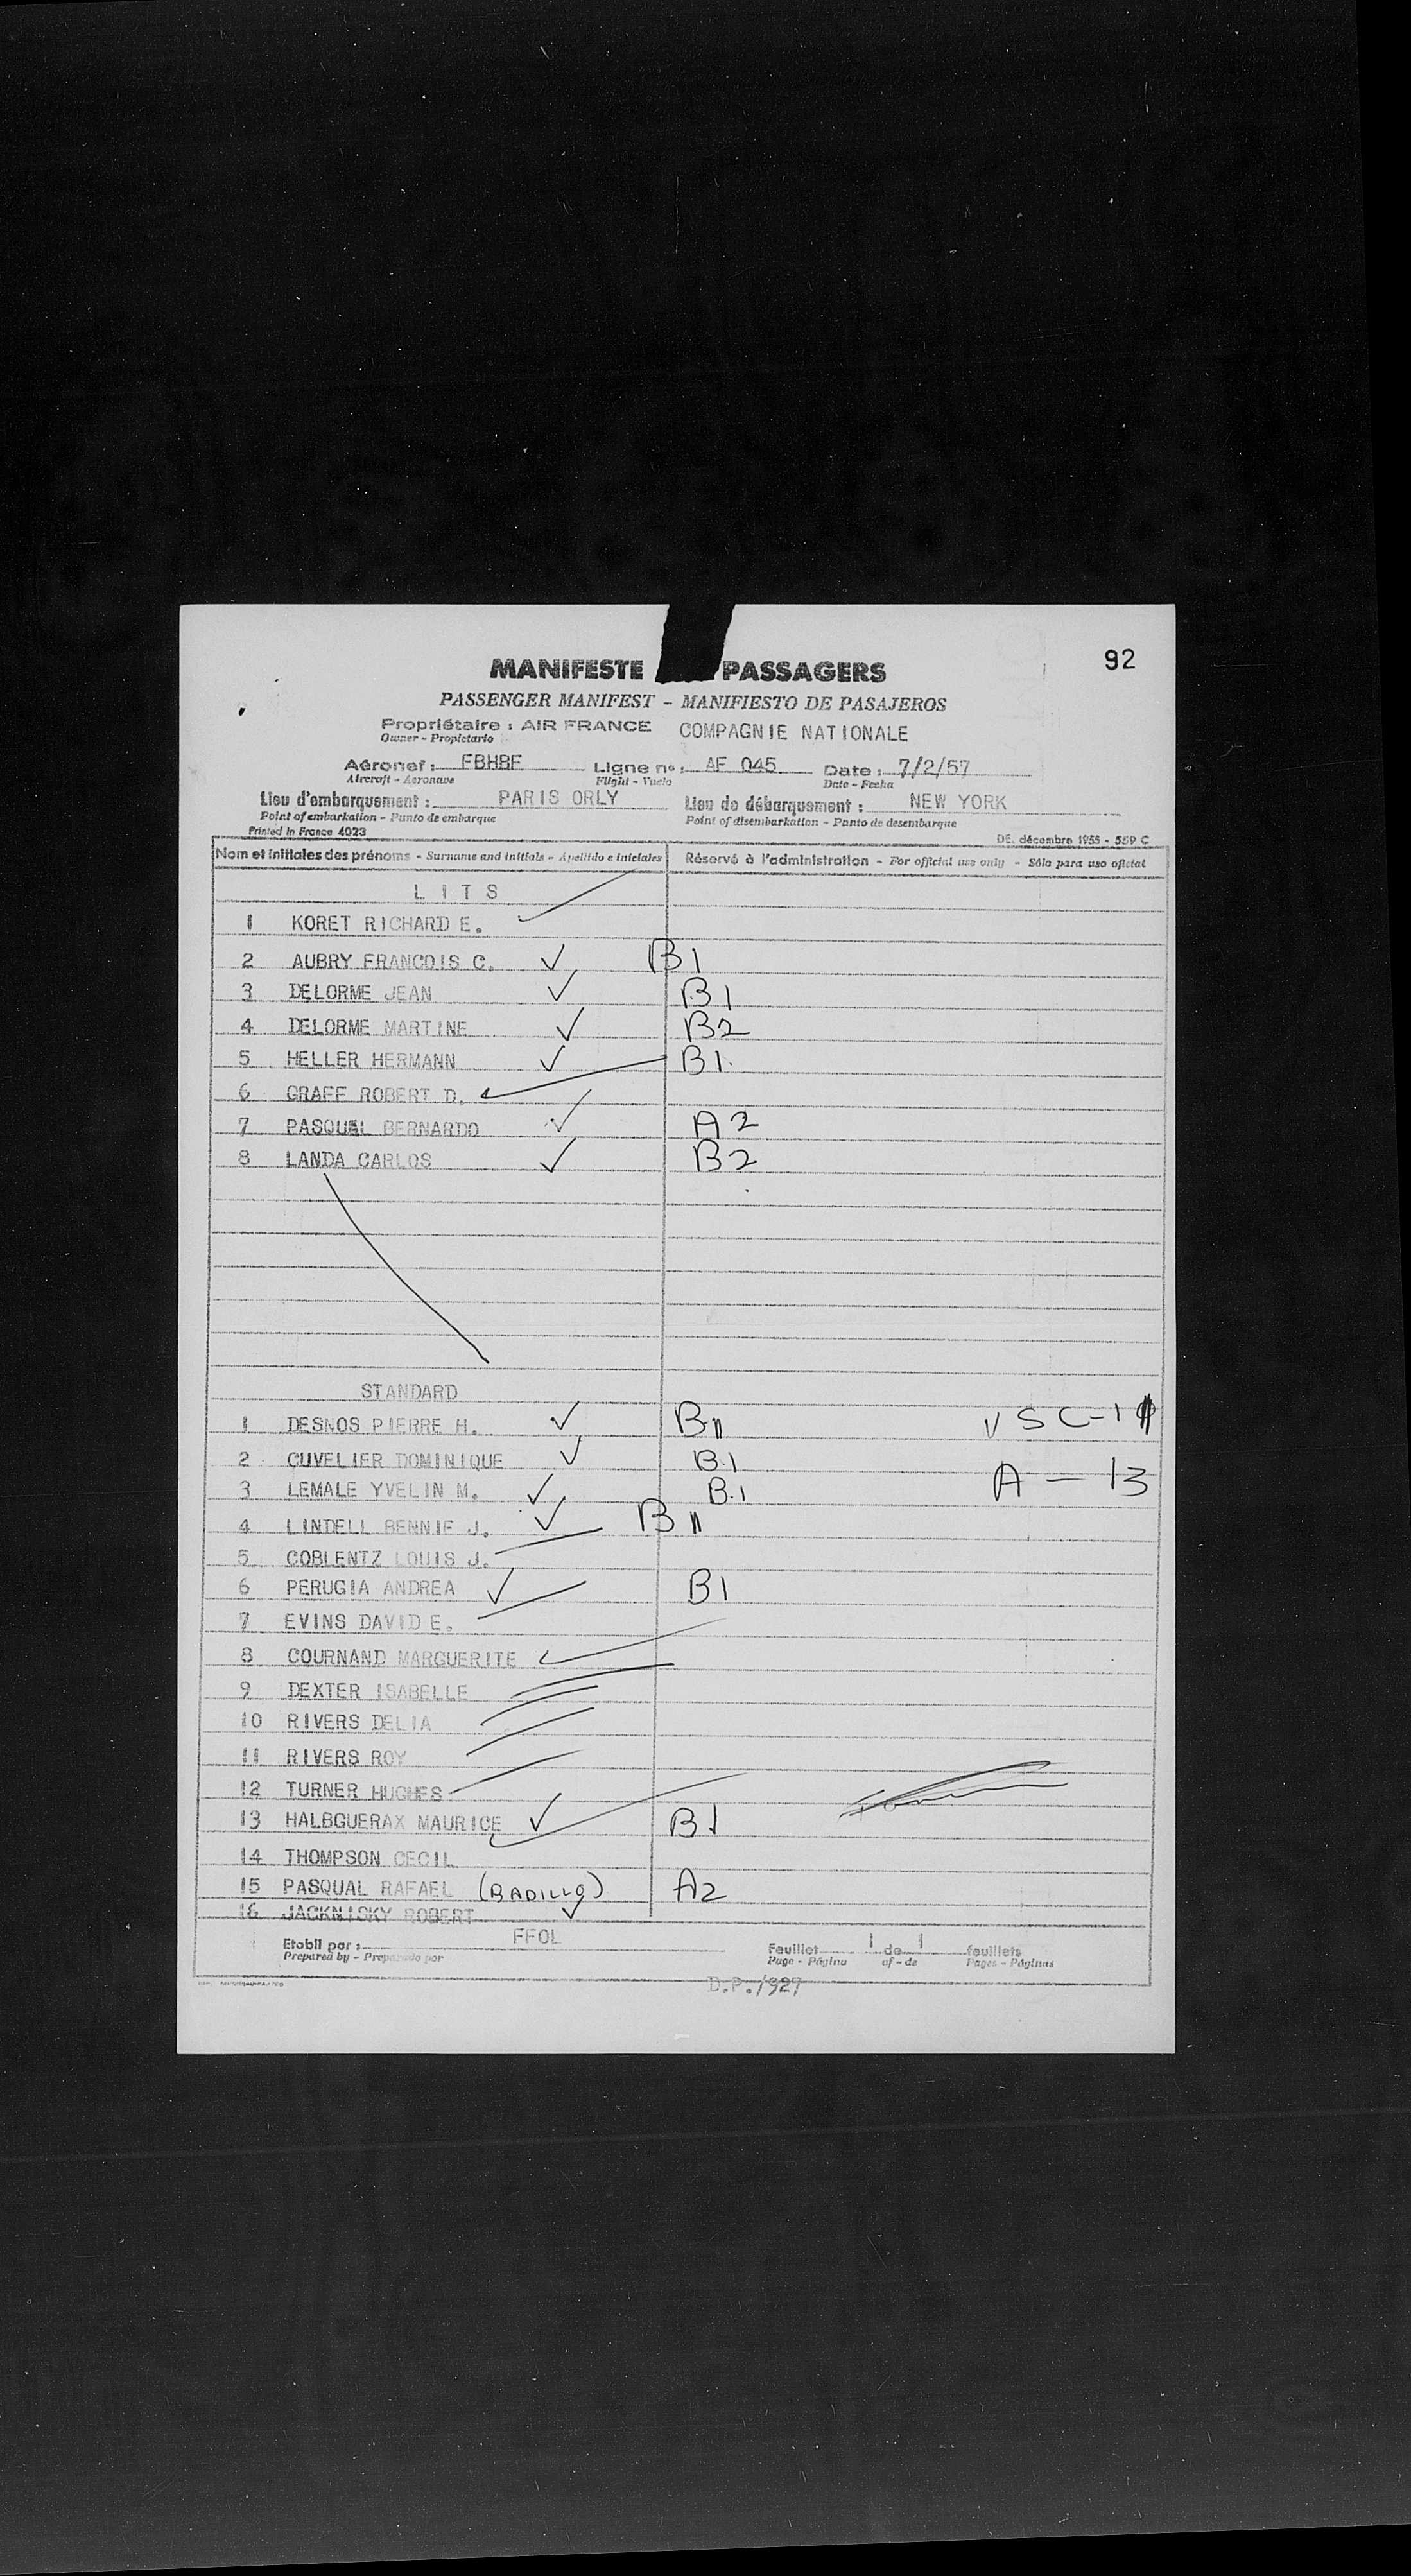 92
MANIFESTE PASSAGERS
PASSENGER MANIFEST - MANIFIESTO DE PASAJEROS
Propriétaire : AIR FRANCE COMPAGNIE NATIONALE
Owner - Propietario
Aéronef : FBHBF Ligne no : AF 045 Date : 7/2/57
Aircraft - Aeronave Flight - Vuelo Date - Fecha
Lieu d'embarquement : PARIS ORLY Lieu de débarquement : NEW YORK
Point of embarkation - Punto de embarque Point of disembarkation - Punto de desembarque
Printed in France 4023 DE. décembre 1955 - 559 C
Nom et initiales des prénoms - Surname and initials - Apellido e iniciales Réservé à l'administration - For official use only - Sóla para uso oficial
L I T S
1 KORET RICHARD E.
2 AUBRY FRANCOIS C. B1
3 DELORME JEAN B1
4 DELORME MARTINE B2
5 HELLER HERMANN B1
6 GRAFF ROBERT D.
7 PASQUAL BERNARDO A2
8 LANDA CARLOS B2
STANDARD
1 DESNOS PIERRE H. B1 VSC-11
2 CUVELIER DOMINIQUE B.1
3 LEMALE YVELIN M. B.1 A - 13
4 LINDELL BENNIE J. B1
5 COBLENTZ LOUIS J.
6 PERUGIA ANDREA B1
7 EVINS DAVID E.
8 COURNAND MARGUERITE
9 DEXTER ISABELLE
10 RIVERS DELIA
11 RIVERS ROY
12 TURNER HUGHES
13 HALBGUERAX MAURICE B1
14 THOMPSON CECIL
15 PASQUAL RAFAEL (BADILLO) A2
16 JACKNISKY ROBERT
Etabli par : FFOL Feuillet 1 de 1 feuillets
Prepared by - Preparado por Page - Página of - de Pages - Páginas
D.P./927